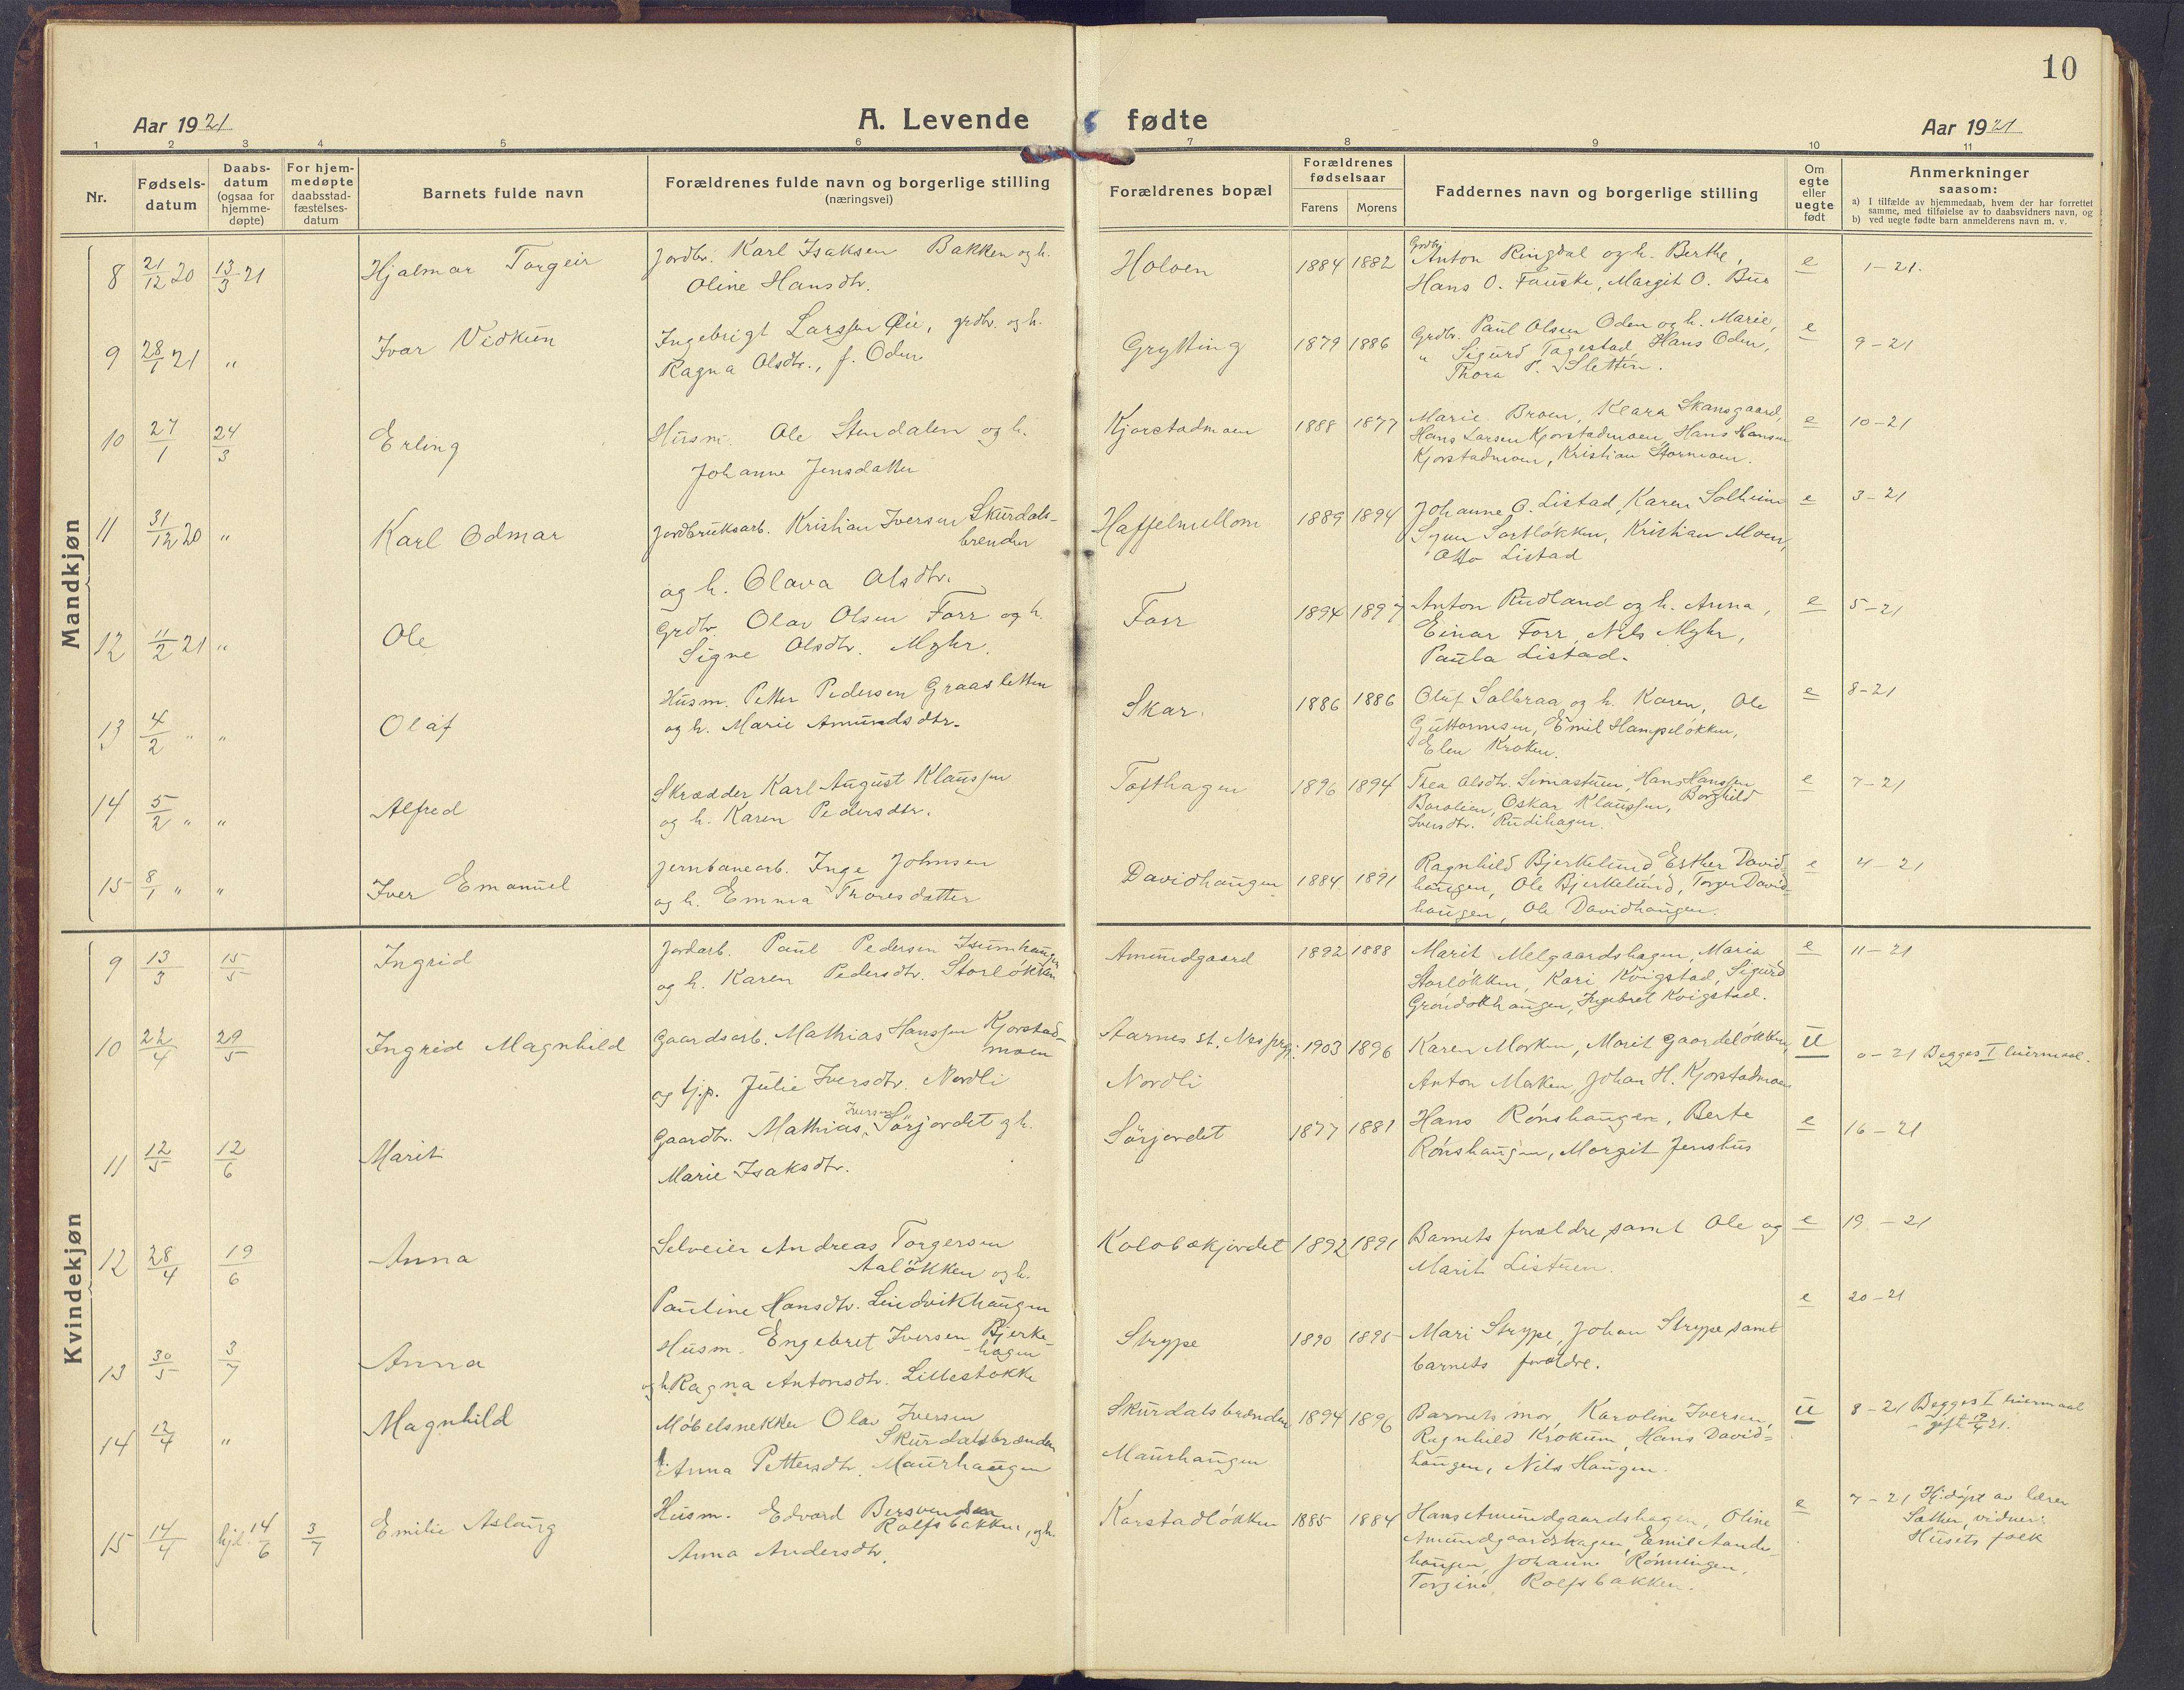 10
Aar 1921
A. Levende fødte
Aar 1921
1 2 3 4 5 6 7 8 9 10 11
Nr.
Fødsels-
datum
Daabs-
datum
(ogsaa for
hjemme-
døpte)
For hjem-
medøpte
daabsstad-
fæstelses-
datum
Barnets fulde navn
Forældrenes fulde navn og borgerlige stilling
(næringsvei)
Forældrenes bopæl
Forældrenes
fødselsaar
Farens Morens
Faddernes navn og borgerlige stilling
Om
egte
eller
uegte
født
Anmerkninger
saasom:
a) I tilfælde av hjemmedaab, hvem der har forrettet
samme, med tilføielse av to daabsvidners navn, og
b) ved uegte fødte barn anmelderens navn m. v.
Mandkjøn
8 21/12 20 13/3 21 Hjalmar Torgeir
Jordbr. Karl Isaksen Bakken og h.
Oline Hansdtr.
Holoen 1884 1882
Grdbr.
Anton Ringdal og h. Berthe,
Hans O. Fauske, Margit O. Bue
e 1-21.
9 28/1 21 " Ivar Vidkun
Ingebrigt Larssen Øie, grdbr. og h.
Ragna Olsdtr., f. Oden
Grytting 1879 1886
Grdbr. Paul Olsen Oden og h. Marie,
" Sigurd Tagestad Hans Oden,
Thora P. Sletten.
e 9-21
10 27/1 24/3 Erling
Husm. Ole Stendalen og h.
Johanne Jensdatter
Kjorstadmoen 1888 1877
Marie Broen, Klara Skansgaard,
Hans Larsen Kjorstadmoen, Hans Hansen
Kjorstadmoen, Kristian Stormoen.
e 10-21
11 31/12 20 " Karl Odmar
Jordbruksarb. Kristian Iversen Skurdals-
brenden
og h. Olava Olsdtr.
Haffelmellom 1889 1894
Johanne O. Listad, Karen Solheim
Sortløkken, Kristian Moen,
Otto Listad
e 3-21
12 11/2 21 " Ole
Grdbr. Olav Olsen Forr og h.
Signe Olsdtr. Myhr.
Forr 1894 1897
Anton Rudland og h. Anna,
Einar Forr, Nils Myhr,
Paula Listad.
e 5-21
13 4/2 " " Olaf
Husm. Petter Pedersen Graasletten
og h. Marie Amundsdtr.
Skar. 1886 1886
Oluf Solbraa og h. Karen, Ole
Guttormsen, Emil Hampeløkken,
Elen Kroken.
e 8-21
14 5/2 " " Alfred
Skrædder Karl August Klaussen
og h. Karen Pedersdtr.
Tofthagen 1896 1894
Thea Olsdtr. Simastuen, Hans Hanssen
Baralien, Oskar Klaussen, Borghild
Iversdtr. Rudihagen.
e 7-21
15 8/1 " " Iver Emanuel
Jernbanearb. Inge Johnsen
og h. Emma Thoresdatter
Davidhaugen 1884 1891
Ragnhild Bjerkelund, Esther David-
haugen, Ole Bjerkelund, Torger David-
haugen, Ole Davidhaugen.
e 4-21
Kvindekjøn
9 13/3 15/5 Ingrid
Jordarb. Paul Pedersen Isumhaugen
og h. Karen Pedersdtr. Storløkken
Amundgaard 1892 1888
Marit Melgaardshagen, Maria
Storløkken, Kari Kvigstad, Sigurd
Grøndokhaugen, Ingebret Kvigstad.
e 11-21
10 22/4 29/5 Ingrid Magnhild
Gaardsarb. Mathias Hanssen Kjorstad-
moen
og tj.p. Julie Iversdtr. Nordli
Aarnes st. Nes prgj. 1903 1896
Nordli
Karen Morken, Marit Gaardeløkken,
Anton Morken, Johan H. Kjorstadmoen
u 0-21 Begges I leiermaal.
11 12/5 12/6 Marit
Gaardbr. Mathias Iversen Sörjordet og h.
Marie Isaksdtr.
Sörjordet 1877 1881
Hans Rønshaugen, Berte
Rønshaugen, Margit Jenshus
e 16-21
12 28/4 19/6 Anna
Selveier Andreas Torgersen
Aaløkken og h.
Pauline Hansdtr. Lundvikhaugen
Kolobækjordet 1892 1891
Barnets forældre samt Ole og
Marit Listuen.
e 19-21
13 30/5 3/7 Anna
Husm. Engebret Iversen Bjerke-
hagen
og h. Ragna Antonsdtr. Lillestokke
Strype 1890 1895
Mari Strype, Johan Strype samt
barnets forældre.
e 20-21
14 12/4 " Magnhild
Møbelsnekker Olav Iversen
Skurdalsbrænden
Anna Pettersdtr. Maurhaugen
Skurdalsbrænden 1894 1896
Maurhaugen
Barnets mor, Karoline Iversen,
Ragnhild Krokum, Hans David-
haugen, Nils Haugen.
u 8-21 Begges I leiermaal
- gift 21.
15 14/4 hjd. 14/6 3/7 Emilie Aslaug
Husm. Edvard Bersvendsen
Rolfsbakken, og h.
Anna Andersdtr.
Korstadløkken 1885 1884
Hans Amundgaardshagen, Oline
Amundgaardshagen, Emil Aande-
haugen, Johanne Rønningen,
Torgine Rolfsbakken.
e 7-21 Hj.døpt av lærer
Sæther, vidner:
Husets folk